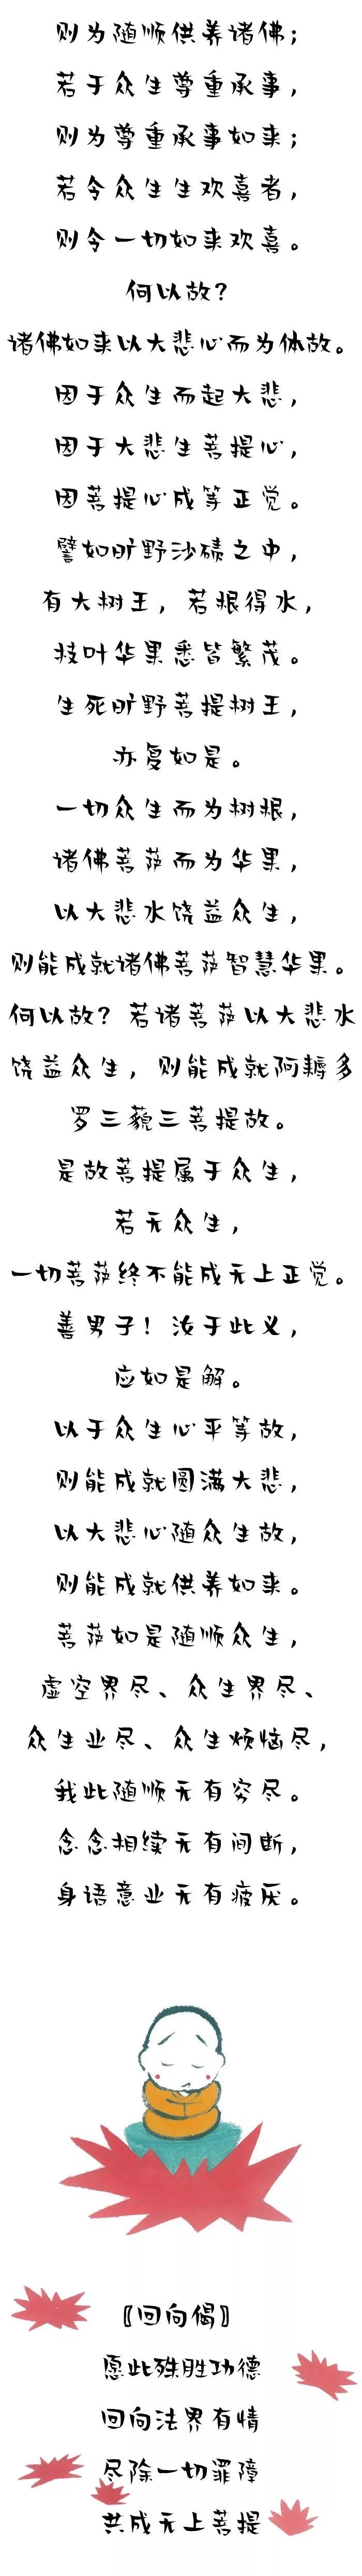 则为随顺供养诸佛；
若于众生尊重承事，
则为尊重承事如来；
若令众生生欢喜者，
则令一切如来欢喜。
何以故？
诸佛如来以大悲心而为体故。
因于众生而起大悲，
因于大悲生菩提心，
因菩提心成等正觉。
譬如旷野沙碛之中，
有大树王，若根得水，
枝叶华果悉皆繁茂。
生死旷野菩提树王，
亦复如是。
一切众生而为树根，
诸佛菩萨而为华果，
以大悲水饶益众生，
则能成就诸佛菩萨智慧华果。
何以故？若诸菩萨以大悲水
饶益众生，则能成就阿耨多
罗三藐三菩提故。
是故菩提属于众生，
若无众生，
一切菩萨终不能成无上正觉。
善男子！汝于此义，
应如是解。
以于众生心平等故，
则能成就圆满大悲，
以大悲心随众生故，
则能成就供养如来。
菩萨如是随顺众生，
虚空界尽、众生界尽、
众生业尽、众生烦恼尽，
我此随顺无有穷尽。
念念相续无有间断，
身语意业无有疲厌。
〖回向偈〗
愿此殊胜功德
回向法界有情
尽除一切罪障
共成无上菩提